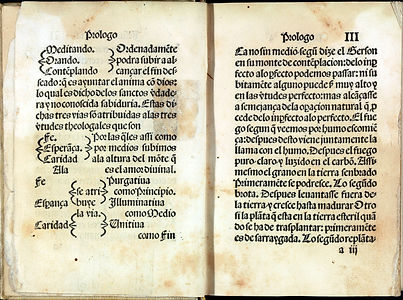 Prologo
Meditando. Ordenadamẽte
Orando. podra subir a al-
Contẽplando cançar el fin des
seado: q̃ es ayuntar el anima cõ dios:
lo qual es dicho delos sanctos ṽdade
ra y no conoscida sabiduria. Estas di
chas tres vias sõ atribuydas a las tres
ṽtudes theologales que son
Fe. Por las q̃les assi como
Esperãça. por medios subimos
Caridad ala altura del mõte q̃
Ala es el amor diuinal.
Fe Purgatiua
se atri como principio.
Espança buye Illuminatiua
la via. como Medio
Caridad Unitiua
como Fin
Prologo III
Ca no sin medio segũ dize el Gerson
en su monte de contẽplacion: delo inp̃
fecto alo p̃fecto podemos passar: ni su
bitamẽte alguno puede muy alto y
en las v̓tudes perfecto: mas alcãçasse
a semejança dela operacion natural q̃ p̃
cede delo inp̃fecto alo perfecto. El fue
go segun q̃ veemos por humo escomiẽ
ça: despues desto viene juntamente la
llama con el humo. Despues el fuego
puro: claro y luzido en el carbõ. Assi
mesmo el grano en la tierra senbrado
Primeramẽte se podresce. Lo segũdo
brota. Despues leuantasse fuera de
la tierra y cresce hasta madurar Otro
si la plãta q̃ esta en la tierra esteril quã
do se ha de trasplantar: primeramẽt
es desarraygada. Lo segũdo replãta
a iij